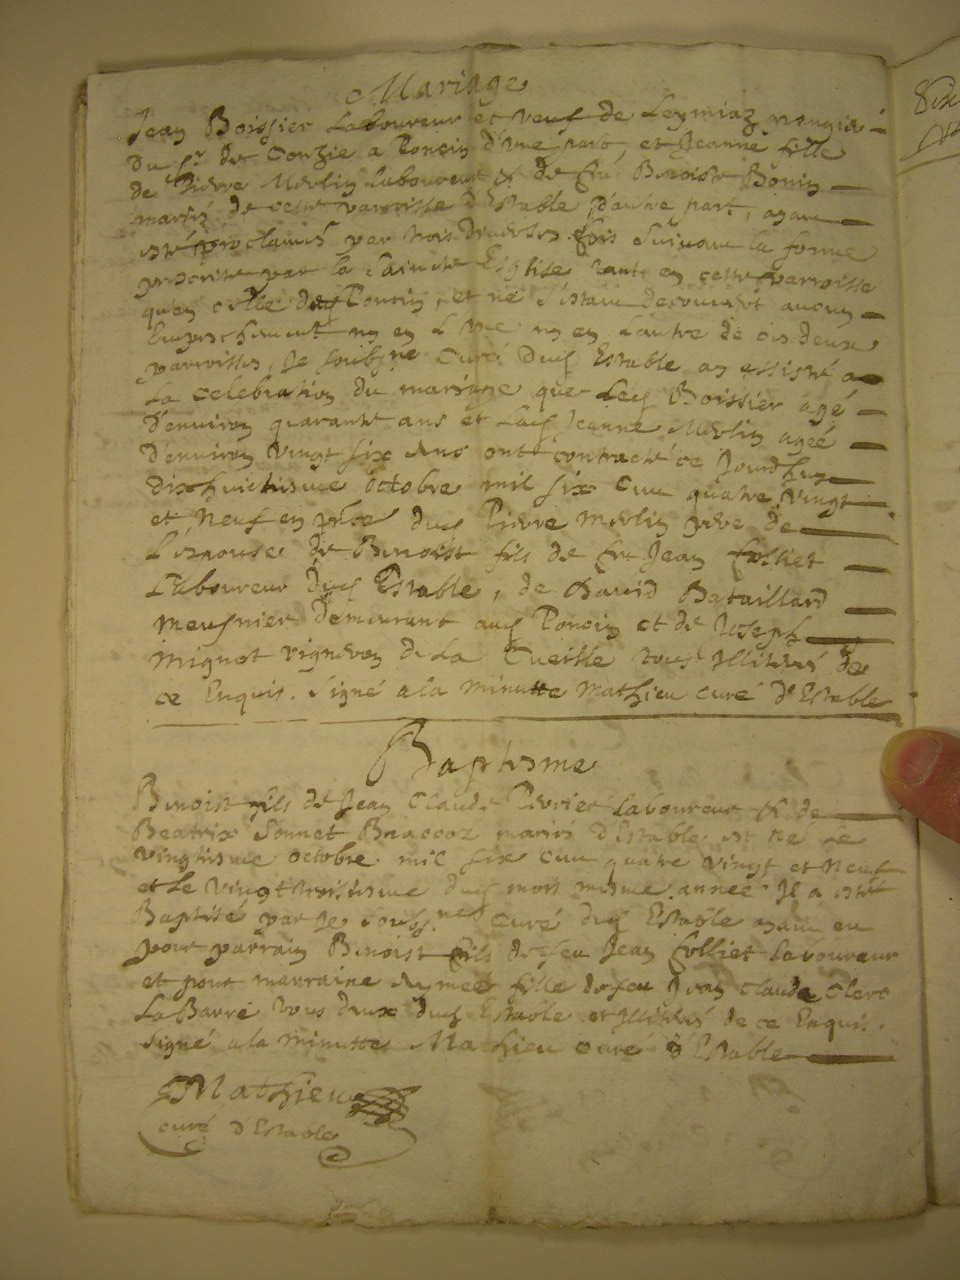 Mariage
Jean Boissier Laboureur et veuf de Leymiaz
Du Sr de Conzie a Poncin d'une part, et Jeanne fille
de Pierre Merlin Laboureur & de feu Benoiste Bonin
mariés de cette parroisse d'Estable d'autre part, ayant
esté proclamés par trois diverses fois suivant la forme
prescrite par la saincte Eglise tant en cette parroisse
qu'en celle dud Poncin, et ne s'estant decouvert aucun
Empeschement ny en L'une ny en L'autre de ces deux
parroisses, Je soubsne Curé dud Estable ay assisté a
La celebration du mariage que Led Boissier agé
D'environ quarante ans et Lad Jeanne Merlin ageé
D'environ vingt six Ans ont contracté ce Jourdhuy
Dixhuictiesme octobre mil six cent quatre vingt
et Neuf en pnce dud Pierre Merlin pere de
L'espouse de Benoist fils de feu Jean Folliet
Laboureur dud Estable, de David Bataillard
Meusnier Demeurant aud Poncin et de Joseph
Mignot vigneron de La Cueille tous Illiterés de
ce Enquis. Signé a la minutte Mathieu curé D'Estable
Baptesme
Benoist fils de Jean Claude Perrier Laboureur & de
Beatrix Sonnet Braccoz mariés d'Estable est né Le
vingtiesme octobre mil six cent quatre vingt et Neuf
et Le vingt troisiesme dud mois mesme année Il a esté
Baptisé par Je soussné Curé dud Estable ayant eu
pour parrain Benoist fils de feu Jean Folliet Laboureur
et pour marraine Aymeé fille de feu Jean Claude Clerc
La Barre tous deux dud Estable et Illiterés de ce Enquis.
Signé a la minutte Mathieu curé d'Estable
Mathieu
curé d'Estable